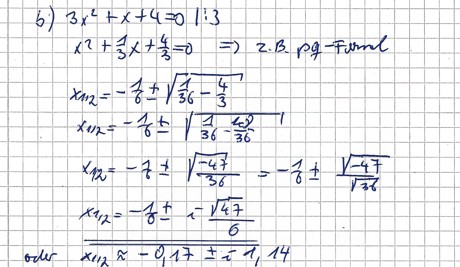 b) 3x² + x + 4 = 0 |:3
x² + 1/3 x + 4/3 = 0 => z.B. pq-Formel
x₁,₂ = -1/6 ± √(1/36 - 4/3)
x₁,₂ = -1/6 ± √(1/36 - 48/36)
x₁,₂ = -1/6 ± √(-47/36) = -1/6 ± √-47/√36
x₁,₂ = -1/6 ± i √47/6
oder x₁,₂ ≈ -0,17 ± i 1,14